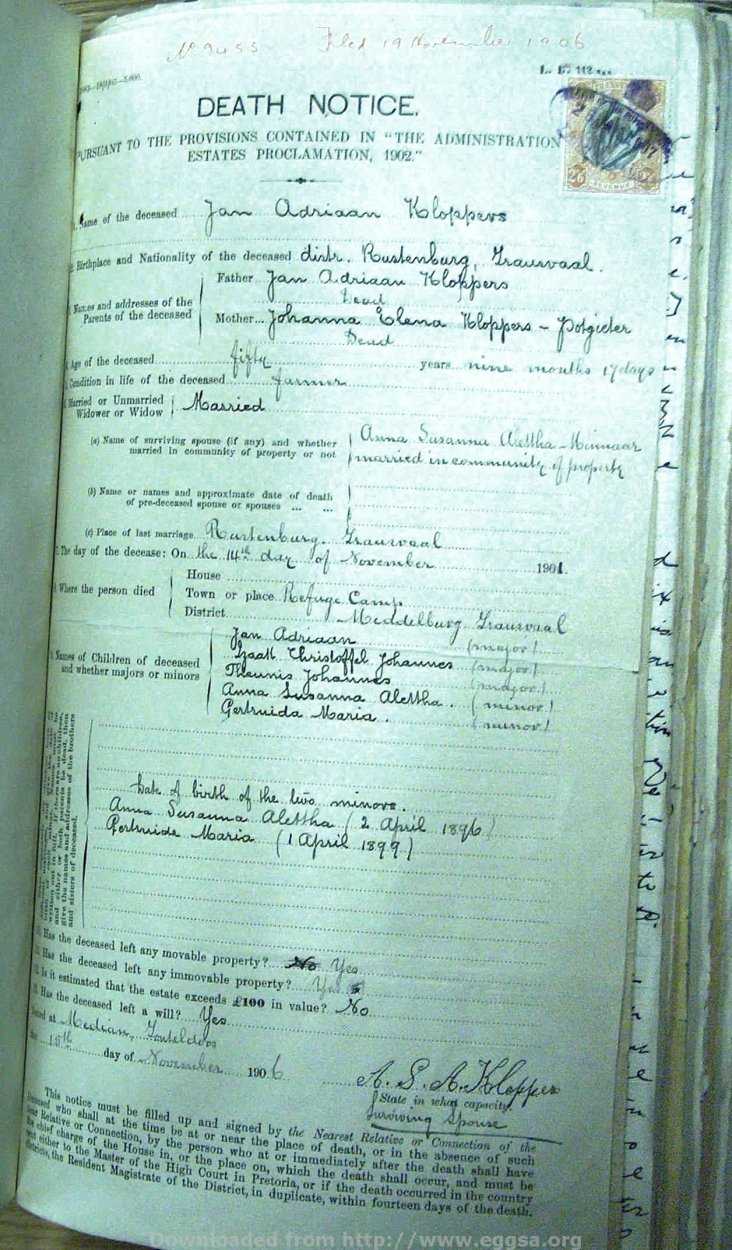 Filed 19 November 1906
DEATH NOTICE.
PURSUANT TO THE PROVISIONS CONTAINED IN "THE ADMINISTRATION
ESTATES PROCLAMATION, 1902."
Name of the deceased Jan Adriaan Kloppers
Birthplace and Nationality of the deceased distr. Rustenburg, Transvaal.
Names and addresses of the Parents of the deceased
Father Jan Adriaan Kloppers
Dead
Mother Johanna Elena Kloppers - Potgieter
Dead
Age of the deceased fifty years nine months 17 days
Condition in life of the deceased farmer
Married or Unmarried
Widower or Widow Married
(a) Name of surviving spouse (if any) and whether
married in community of property or not
Anna Susanna Alettha - Minnaar
married in community of property
(b) Name or names and approximate date of death
of pre-deceased spouse or spouses ... ...
(c) Place of last marriage Rustenburg. Transvaal
The day of the decease: On the 14th day of November 1901.
Where the person died
House
Town or place Refuge Camp
District Middelburg Transvaal
Names of Children of deceased
and whether majors or minors
Jan Adriaan (major)
Izaak Christoffel Johannes (major)
Theunis Johannes (major)
Anna Susanna Alettha (minor)
Gertruida Maria. (minor)
give the names and addresses of the brothers
and sisters of deceased.
Date of birth of the two minors.
Anna Susanna Alettha (2 April 1896)
Gertruide Maria (1 April 1899)
Has the deceased left any movable property? No Yes
Has the deceased left any immovable property? Yes
Is it estimated that the estate exceeds £100 in value? No
Has the deceased left a will? Yes
Dated at
the 15th day of November 1906
A. S. A. Kloppers
State in what capacity.
Surviving Spouse
This notice must be filled up and signed by the Nearest Relative or Connection of the
Deceased who shall at the time be at or near the place of death, or in the absence of such
near Relative or Connection, by the person who at or immediately after the death shall have
the chief charge of the House in, or the place on, which the death shall occur, and must be
sent either to the Master of the High Court in Pretoria, or if the death occurred in the country
districts, the Resident Magistrate of the District, in duplicate, within fourteen days of the death.
Downloaded from http://www.eggsa.org